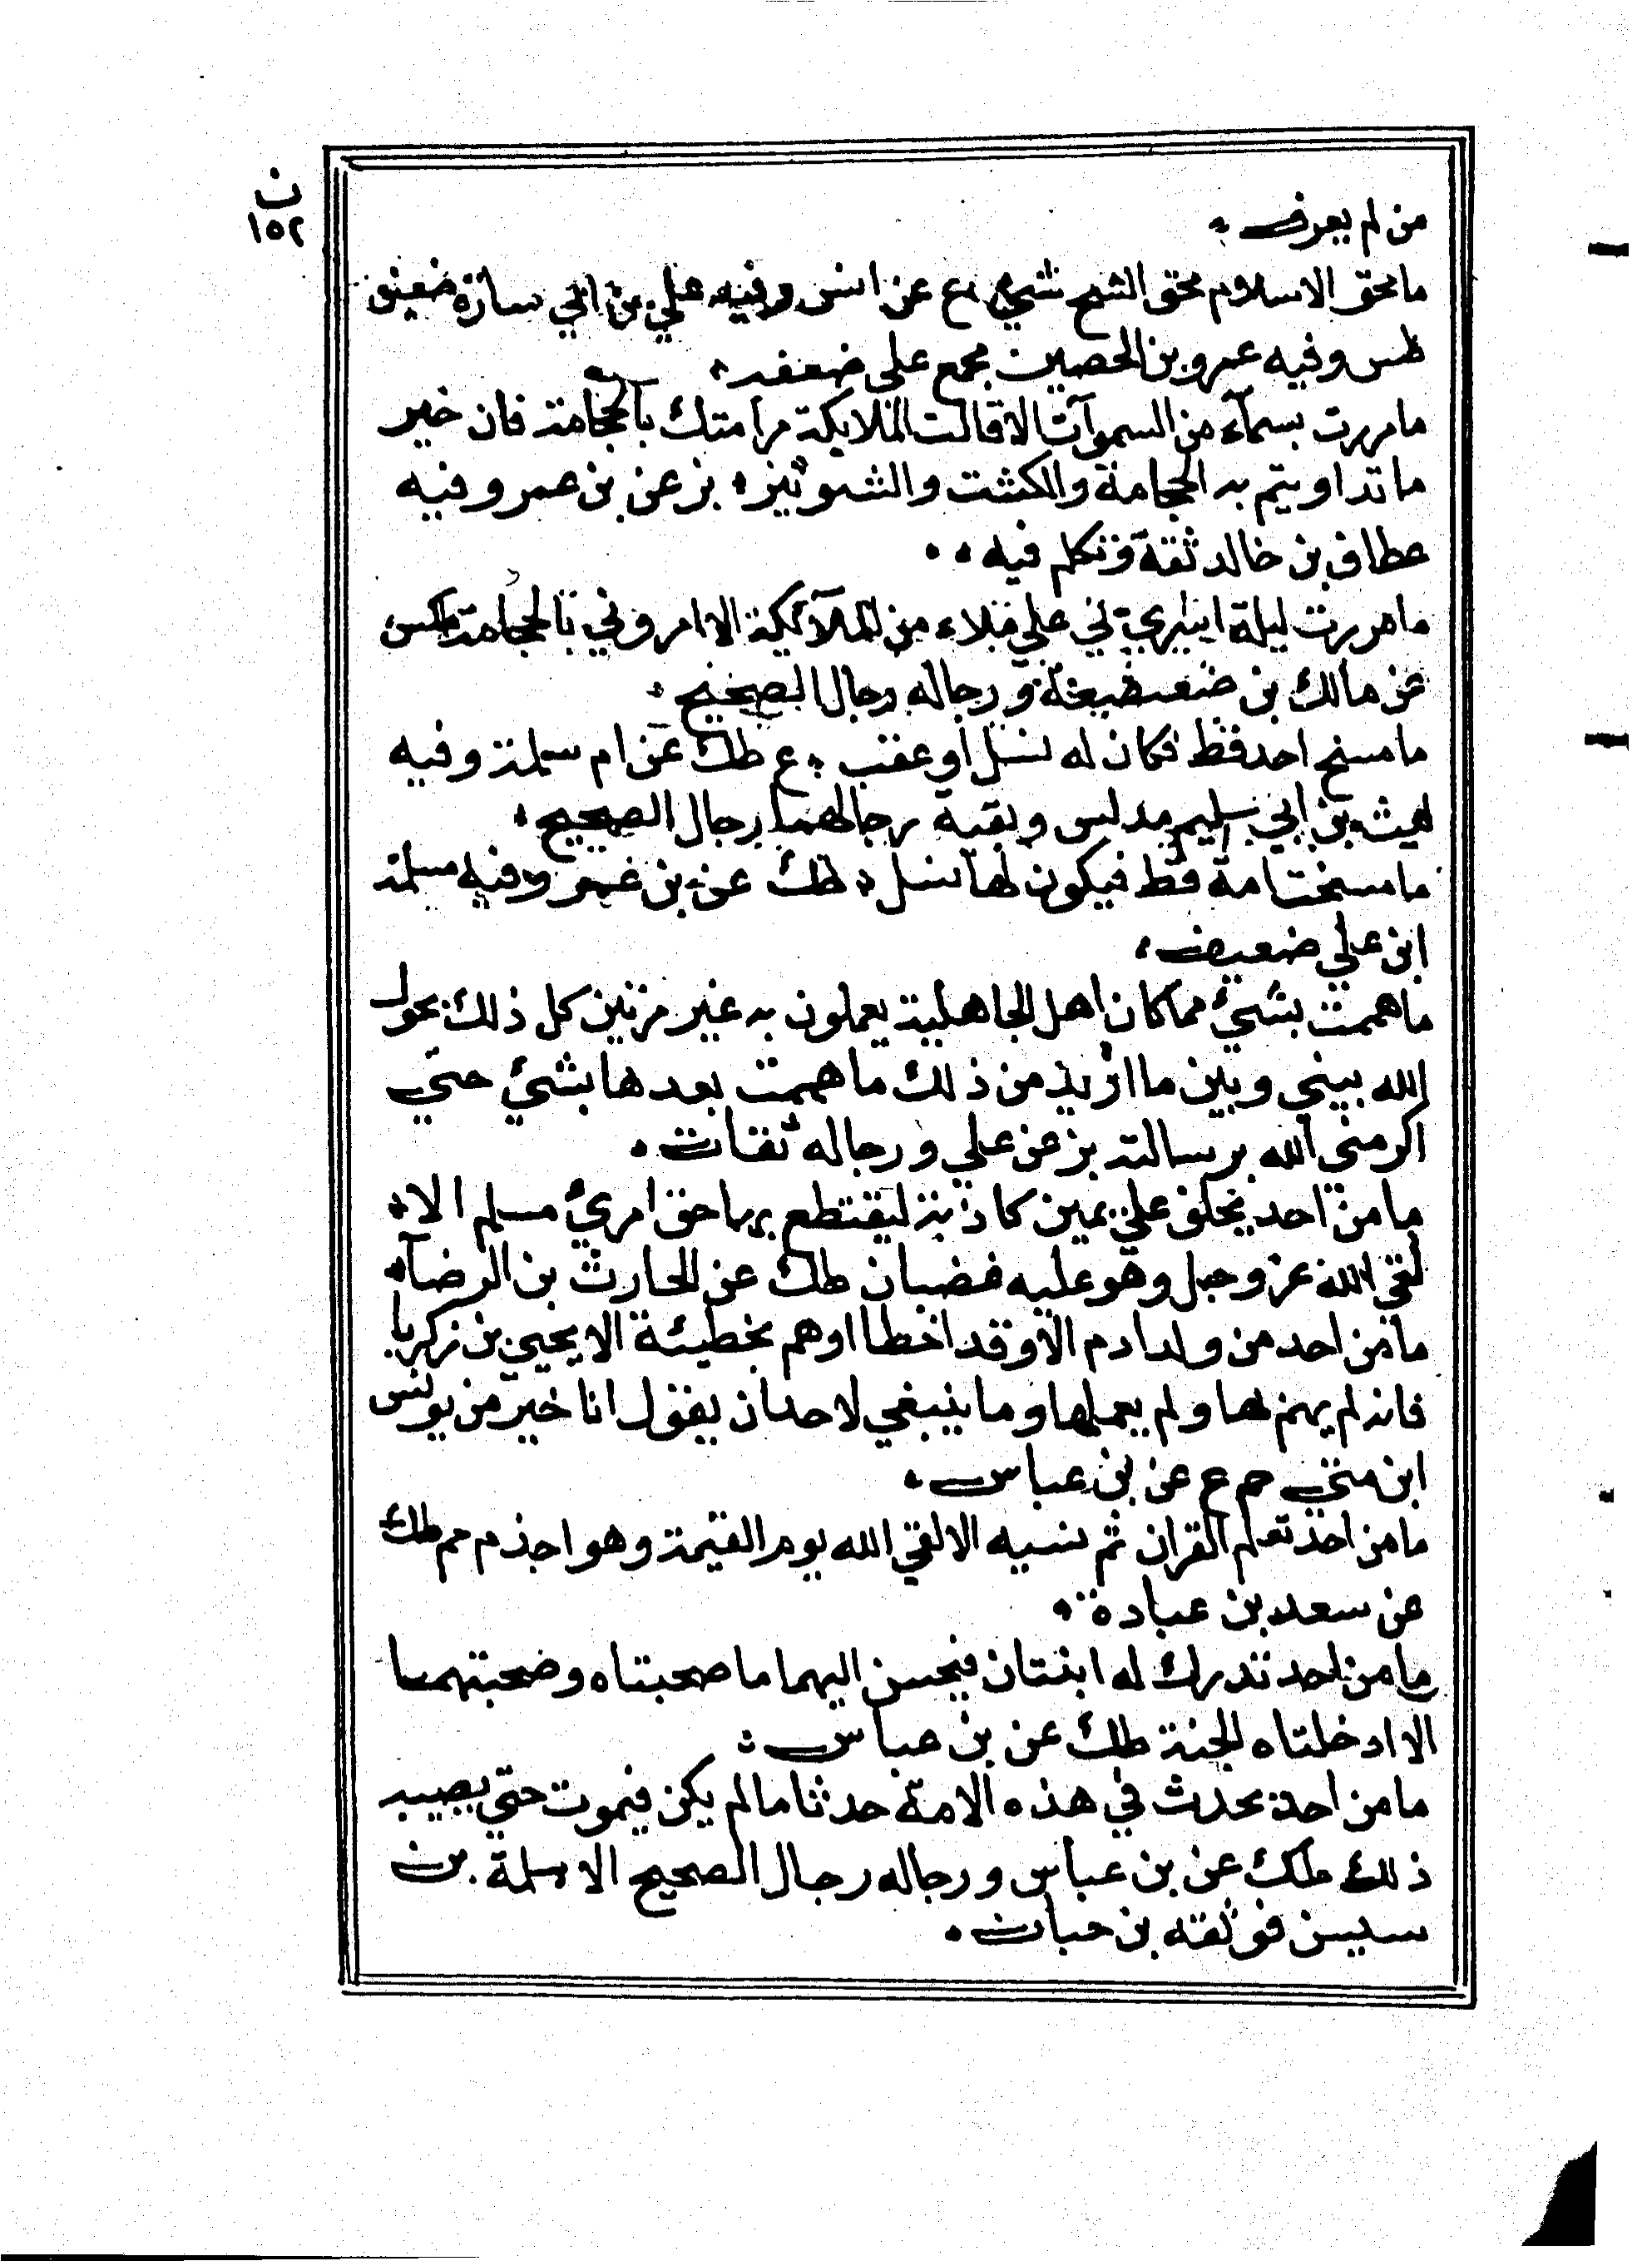 ن
١٥٢
من لم يعرف
ما محق الاسلام محق الشح شيء ع عن انس وفيه علي بن ابي سارة ضعيف
طس وفيه عمرو بن الحصين مجمع على ضعفه
ما مررت بسمآء من السموآت الا قالت الملايكة مر امتك بالحجامة فان خير
ما تداويتم به الحجامة والكشت والشونيز بز عن بن عمر وفيه
عطاف بن خالد ثقة وتكلم فيه
ما مررت ليلة اسري بي علي ملاء من الملآئكة الا امروني بالحجامة طكس
عن مالك بن صعصعة ورجاله رجال الصحيح
ما مسخ احد قط فكان له نسل او عقب ع طك عن ام سلمة وفيه
ليث بن ابي سليم مدلس وبقية رجالهما رجال الصحيح
ما مسخت امة قط فيكون لها نسل طك عن بن عمر وفيه مسلمة
ابن علي ضعيف
ما هممت بشيئ مما كان اهل الجاهلية يعملون به غير مرتين كل ذلك يحول
الله بيني وبين ما اريد من ذلك ما هممت بعدها بشيئ حتي
اكرمني الله برسالته بز عن علي ورجاله ثقات
ما من احد يحلف علي يمين كاذبة ليقتطع بها حق امريئ مسلم الا
لقي الله عز وجل وهو عليه غضبان طك عن الحارث بن البرضآء
ما من احد من ولد ادم الا وقد اخطا او هم بخطيئة الا يحيي بن زكريا
فانه لم يهم بها ولم يعملها وما ينبغي لاحد ان يقول انا خير من يونس
ابن متي حم ع عن بن عباس
ما من احد تعلم القران ثم نسيه الا لقي الله يوم القيمة وهو اجذم حم طك
عن سعد بن عبادة
ما من احد تدرك له ابنتان فيحسن اليهما ما صحبتاه وصحبتهما
الا ادخلتاه الجنة طك عن بن عباس
ما من احد يحدث في هذه الامة حدثا ما لم يكن فيموت حتي يصيبه
ذلك طك عن بن عباس ورجاله رجال الصحيح الا سلمة بن
سيسن فوثقه بن حبان